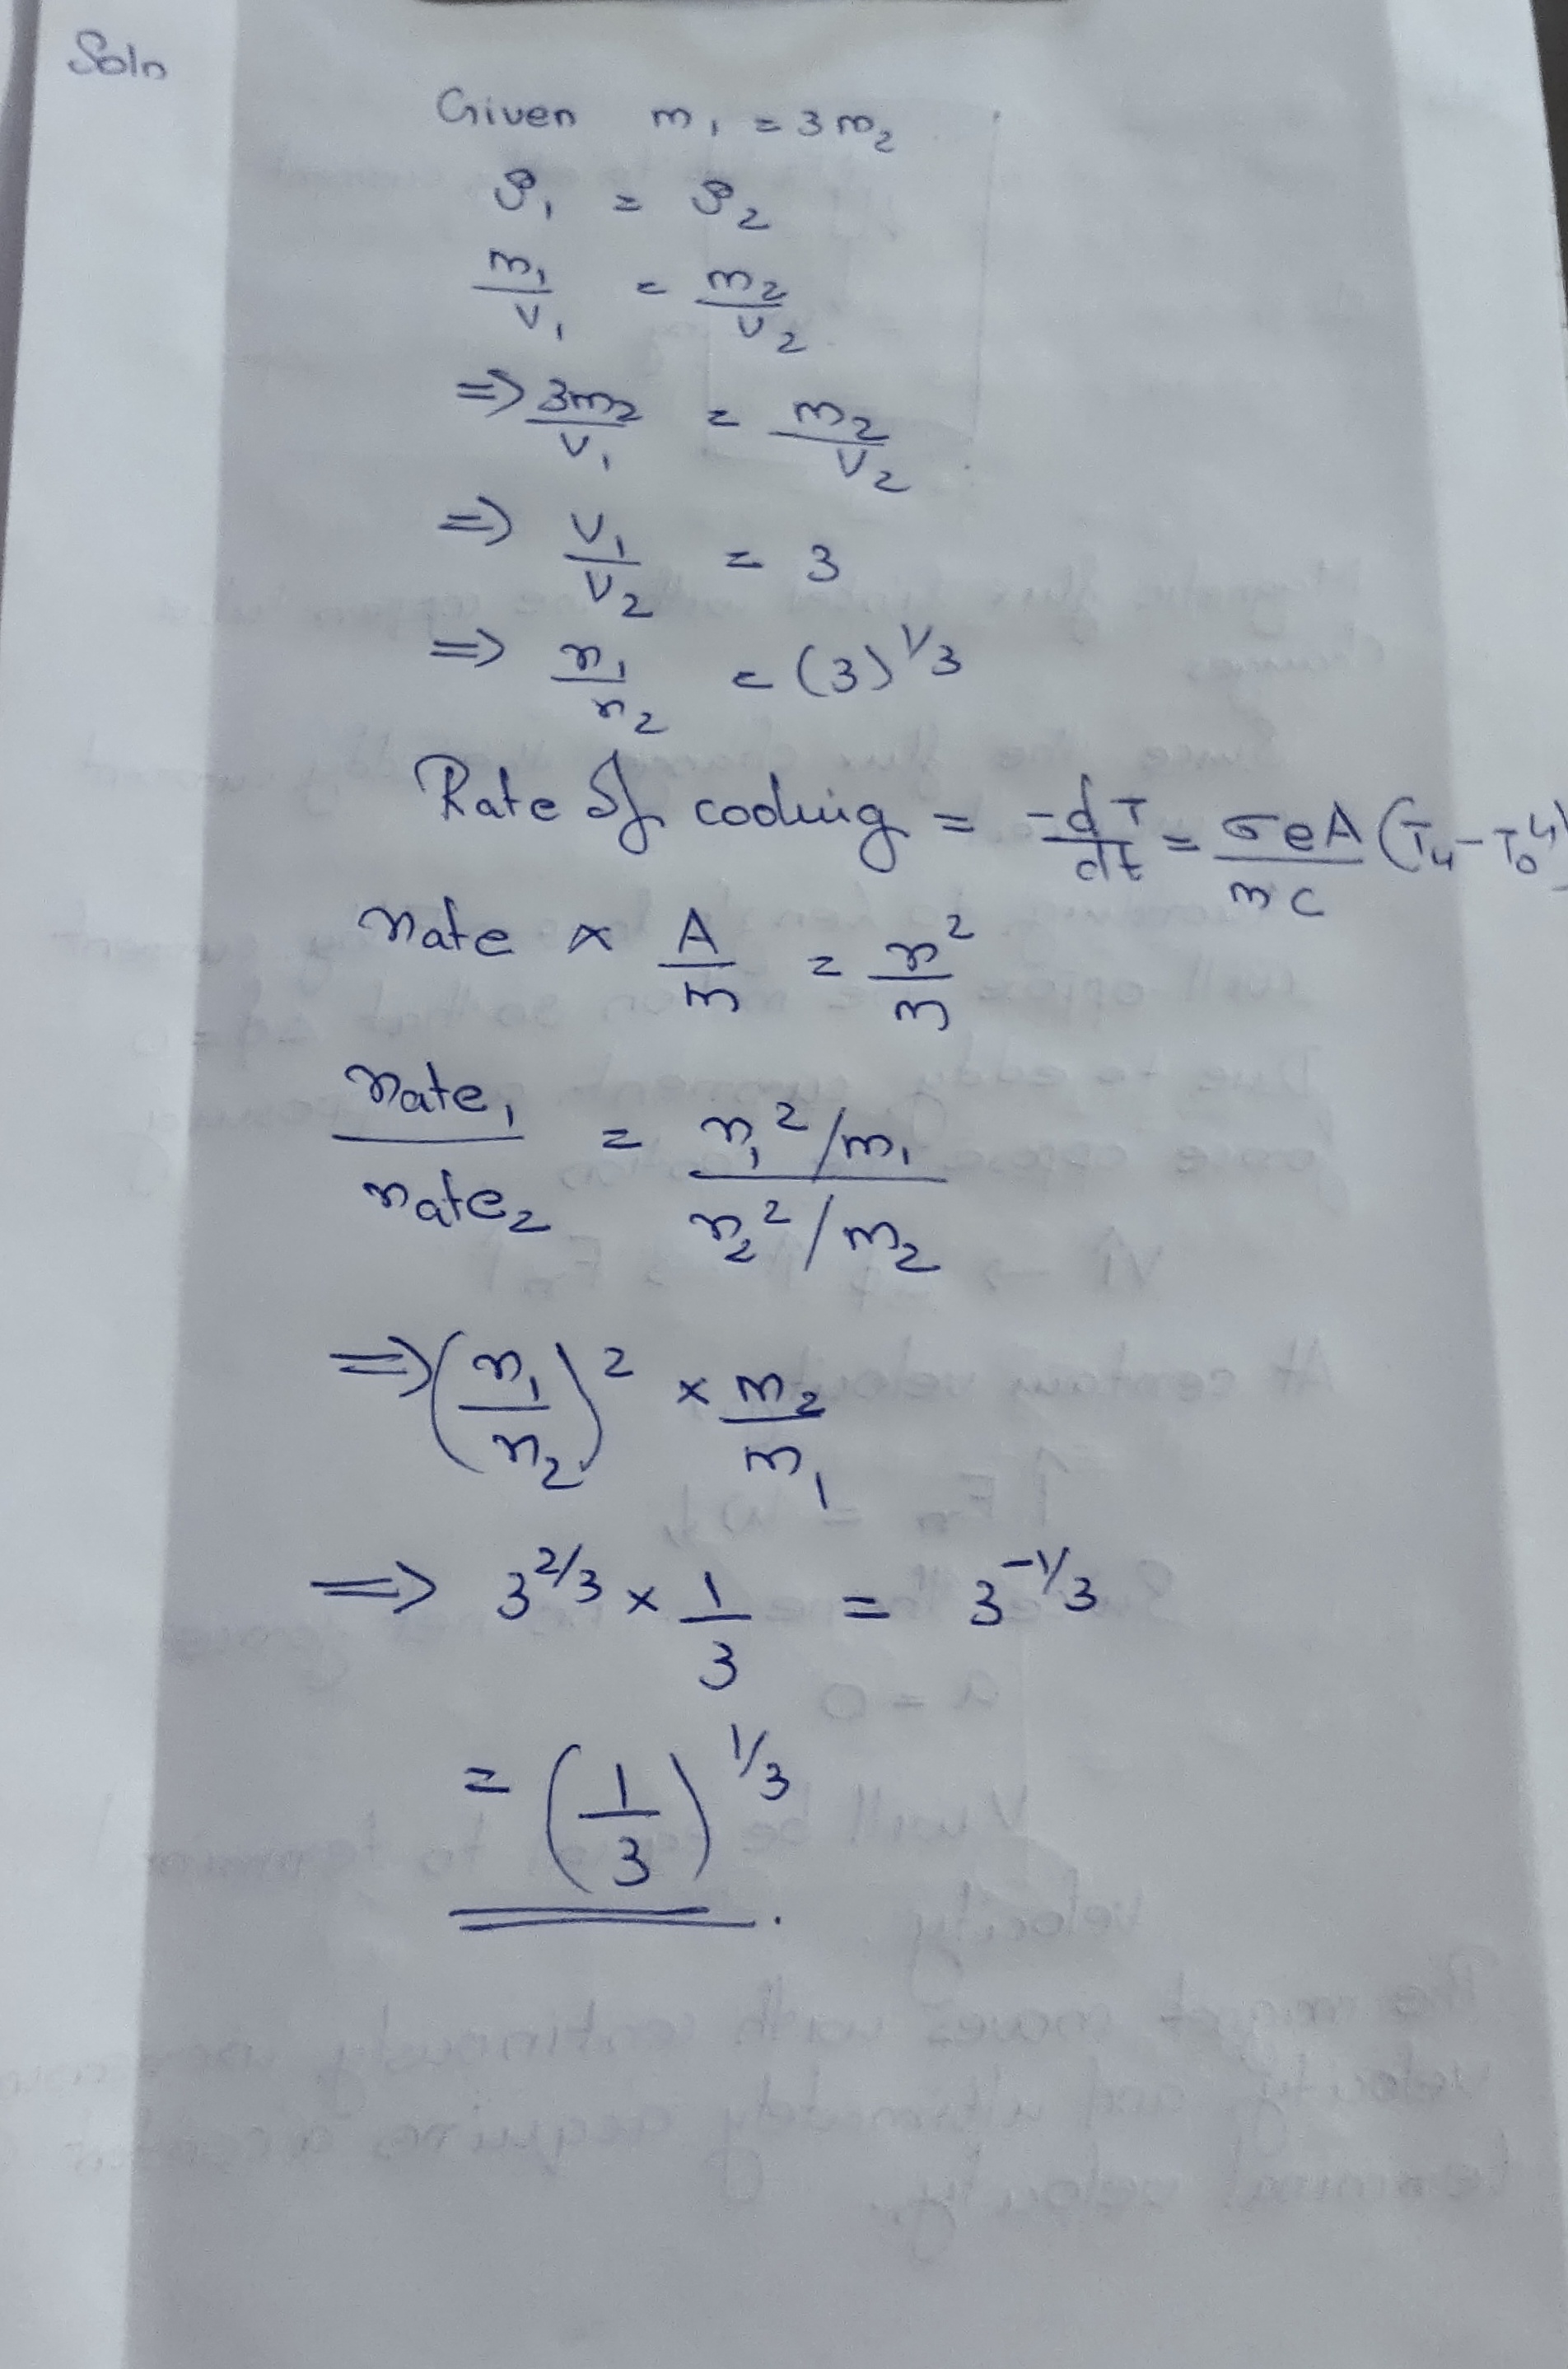 Soln
Given m₁ = 3m₂
ρ₁ = ρ₂
m₁/V₁ = m₂/V₂
=> 3m₂/V₁ = m₂/V₂
=> V₁/V₂ = 3
=> r₁/r₂ = (3)^1/3
Rate of cooling = -dT/dt = σeA/mc (T₄ - T₀⁴)
rate ∝ A/m = r²/m
rate₁/rate₂ = r₁²/m₁ / r₂²/m₂
=> (r₁/r₂)² × m₂/m₁
=> 3^2/3 × 1/3 = 3^-1/3
= (1/3)^1/3.